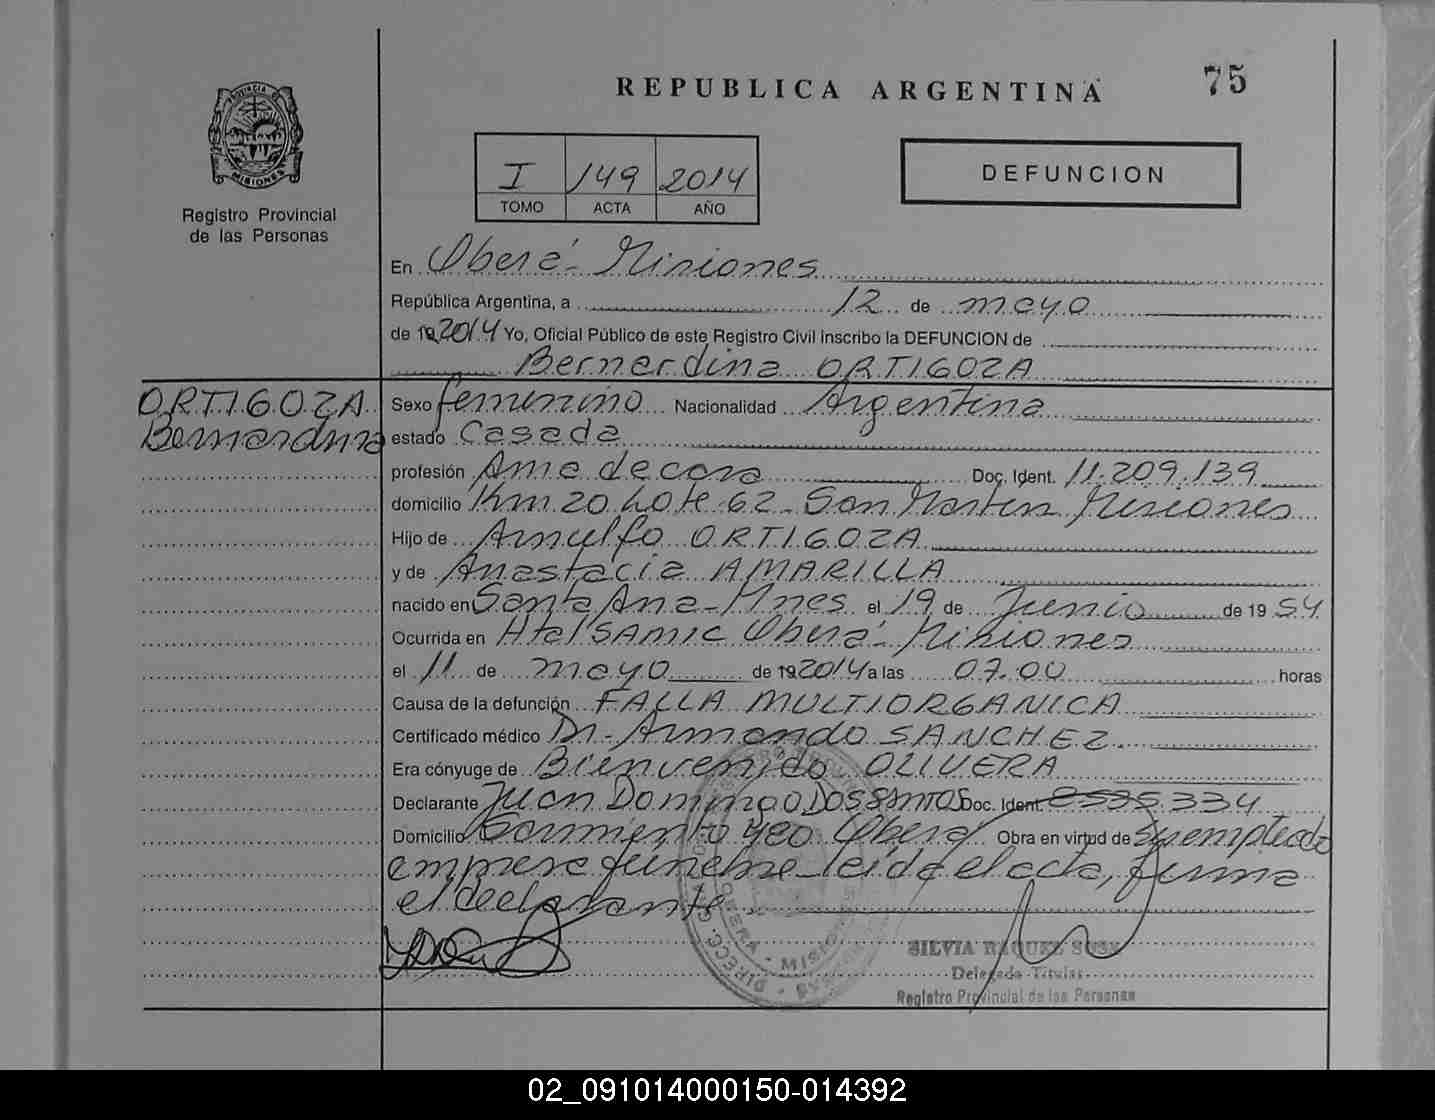 REPUBLICA ARGENTINA
75
PROVINCIA DE
MISIONES
Registro Provincial
de las Personas
I 149 2014
TOMO ACTA AÑO
DEFUNCION
En Oberá - Misiones
República Argentina, a 12 de mayo
de 192014 Yo, Oficial Público de este Registro Civil inscribo la DEFUNCION de
Bernardina ORTIGOZA
ORTIGOZA
Bernardina
Sexo femenino Nacionalidad Argentina
estado Casada
profesión Ama de casa Doc. Ident. 11.209.139
domicilio Km 20 Lote 62 - San Martin Misiones
Hijo de Arnulfo ORTIGOZA
y de Anastacia AMARILLA
nacido en Santa Ana - Mnes el 19 de Junio de 19 54
Ocurrida en Htal SAMIC Oberá - Misiones
el 11 de mayo de 192014 a las 07.00 horas
Causa de la defunción FALLA MULTIORGANICA
Certificado médico Dr. Armando SANCHEZ
Era cónyuge de Bienvenido OLIVERA
Declarante Juan Domingo DOS SANTOS Doc. Ident. 334
Domicilio Sarmiento Oberá Obra en virtud de empleado
empresa funebre - leida el acta, firma
el declarante
SILVIA RAQUEL SOSA
Delegada Titular
Registro Provincial de las Personas
OBERÁ - MISIONES
02_091014000150-014392